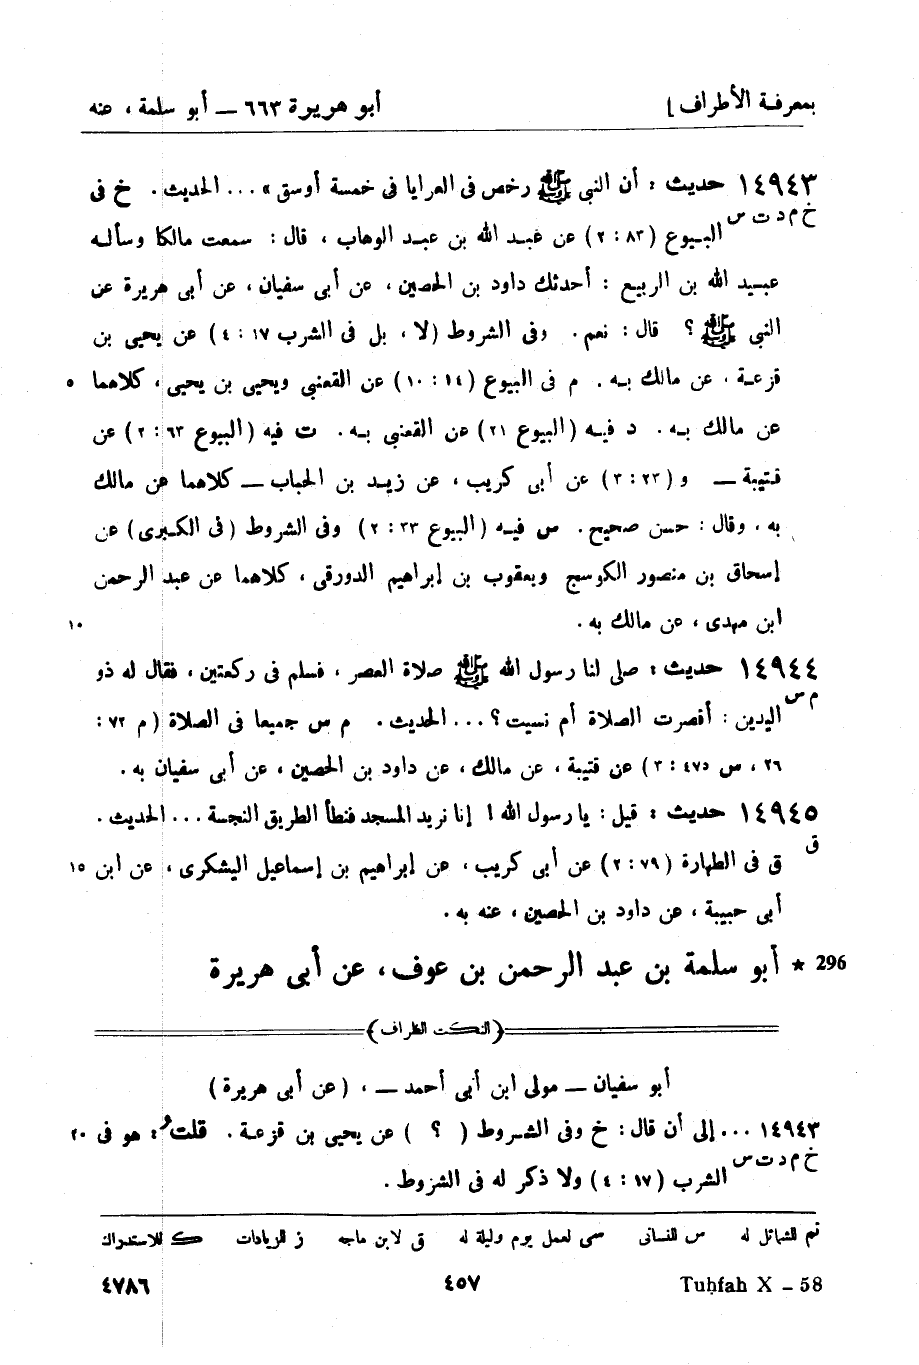 بمعرفة الأطراف ] أبو هريرة ٦٦٣ — أبو سلمة ، عنه
١٤٩٤٣ حديث : أن النبي ﷺ رخص فى العرايا فى خمسة أوسق » ... الحديث . خ فى
خ م د ت س البيوع (٨٣ : ٢) عن عبد الله بن عبد الوهاب ، قال : سمعت مالكا وسأله
عبيد الله بن الربيع : أحدثك داود بن الحصين ، عن أبى سفيان ، عن أبى هريرة عن
النبي ﷺ ؟ قال : نعم . وفى الشروط (لا ، بل فى الشرب ١٧ : ٤) عن يحيى بن
قزعة ، عن مالك به . م فى البيوع (١٤ : ١٠) عن القعنبي ويحيى بن يحيى ، كلاهما ٥
عن مالك به . د فيه (البيوع ٢١) عن القعنبي به . ت فيه (البيوع ٦٣ : ٢) عن
قتيبة — و (٢٣ : ٣) عن أبى كريب ، عن زيد بن الحباب — كلاهما عن مالك
به ، وقال : حسن صحيح . س فيه (البيوع ٣٣ : ٢) وفى الشروط (فى الكبرى) عن
إسحاق بن منصور الكوسج ويعقوب بن إبراهيم الدورقى ، كلاهما عن عبد الرحمن
ابن مهدى ، عن مالك به . ١٠
١٤٩٤٤ حديث : صلى لنا رسول الله ﷺ صلاة العصر ، فسلم فى ركعتين ، فقال له ذو
م س اليدين : أقصرت الصلاة أم نسيت ؟ ... الحديث . م س جميعا فى الصلاة (م ٧٢ :
٢٦ ، س ٤٧٥ : ٣) عن قتيبة ، عن مالك ، عن داود بن الحصين ، عن أبى سفيان به .
١٤٩٤٥ حديث : قيل : يا رسول الله ! إنا نريد المسجد فنطأ الطريق النجسة ... الحديث .
ق ق فى الطهارة (٧٩ : ٢) عن أبى كريب ، عن إبراهيم بن إسماعيل اليشكرى ، عن ابن ١٥
أبى حبيبة ، عن داود بن الحصين ، عنه به .
296 ★ أبو سلمة بن عبد الرحمن بن عوف ، عن أبى هريرة
(النكت الظراف)
أبو سفيان — مولى ابن أبى أحمد — ، (عن أبى هريرة)
١٤٩٤٣ ... إلى أن قال : خ وفى الشروط ( ؟ ) عن يحيى بن قزعة . قلت : هو فى ٢٠
خ م د ت س الشرب (١٧ : ٤) ولا ذكر له فى الشروط .
تم للشمائل له س للنسائى سى لعمل يوم وليلة له ق لابن ماجه ز للزيادات ك للاستدراك
Tuḥfah X – 58 ٤٥٧ ٤٧٨٦